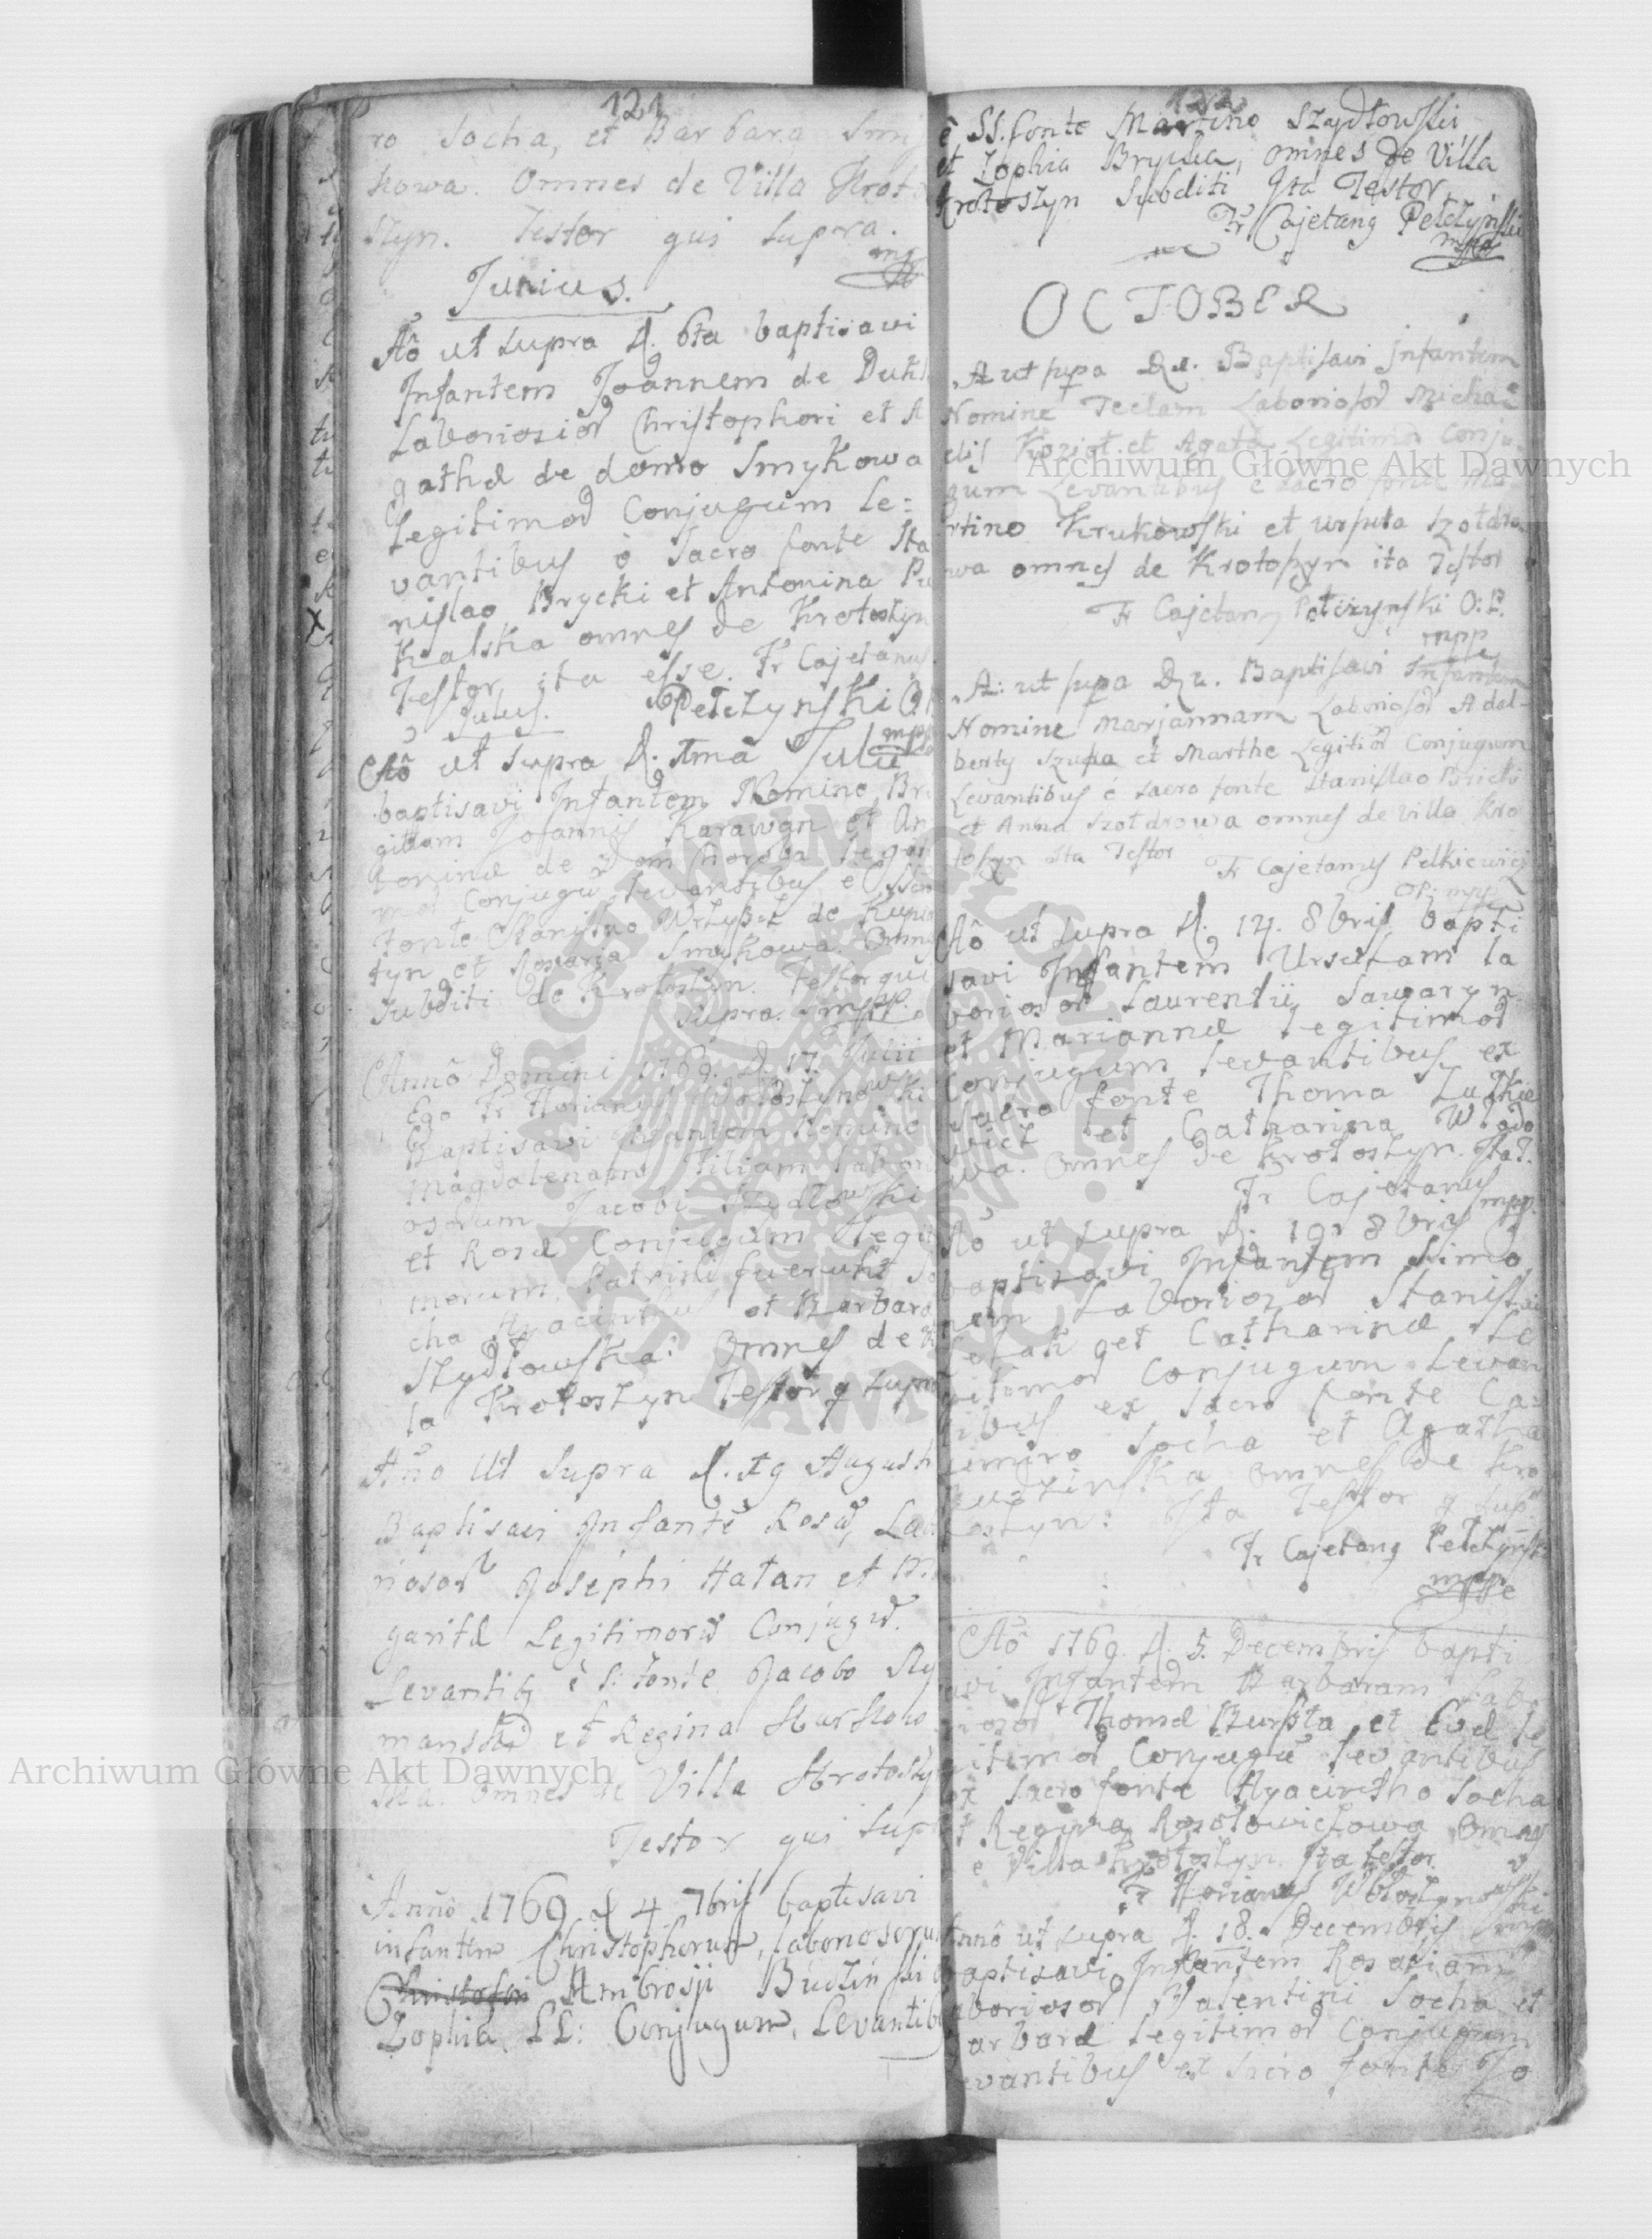 121
ro Socha, et Barbara Smy
kowa. Omnes de Villa Krot
szyn. Testor qui supra.
mp
Junius.
Aõ ut supra d. 6ta baptisavi
Infantem Joannem de Dukl
Laboriosiorũ Christophori et A
gathæ de domo Smykowa
Legitimorũ Conjugum Le:
vantibus è Sacro fonte Sta
nislao Brycki et Antonina Pu
Kalska omnes de Krotoszyn
Testor ita esse. Fr Cajetanus
Pełczynski O
mpp
Julius.
Aõ ut supra d. 1ma Julii
baptisavi Infantem Nomine Bri
gittam Joannis Karawan et An
toninæ de Dom Legiti
morũ Conjugũ Levantibus e
fonte Stanislao de
tyn et Rosaria Smykowa. Omnes
Subditi de Krotoszyn. Testor qui
Supra. mpp.
Annô Domini 1769. d. 17. Julii
Ego Fr Florianus Włostynowski
Baptisavi Infantem Nomine
Magdalenam Filiam Labori
osorum Jacobi Szydłowski
et Rosæ Conjugum Legiti
morum. Patrini fuerunt So
cha Hyacinthus et Barbara
Szydłowska: Omnes de
la Krotoszyn Testor q supra
Año ut Supra d. 19 Augusti
Baptisavi Infantẽ Rosã, Lab
riosorũ Josephi Hałan et M
garitæ Legitimorũ Conjugũ.
Levantib9 è S: fonte Jacobo Szy
manski et Regina
ska. omnes de Villa Krotoszy
Testor qui Sup
Annô 1769 d 4 7bris baptisavi
infantem Christophorum, laboriosorum
Christofori Ambrosij Budzinski
Zophiæ LL: Conjugum, Levantib
122
è SS. fonte Martino Szydłowski
et Zophia Brycka, omnes de Villa
Krotoszyn Subditi Ita Testor
Fr Cajetang Pełczyński
mpp
OCTOBER
A ut supa Baptisavi Infantem
Nomine Teclam Laboriosorũ Micha
elis Kozioł et Agatæ Legitimorũ Conju
gum Levantibus è sacro fonte Ma
rtino Krukowski et Urszula Szołdro
wa omnes de Krotoszyn ita Testor
Fr Cajetang Pełczynski O: P.
mpp
A: ut supa Baptisavi Infantem
Nomine Marjannam Laboriosorũ Adal
berty Szupa et Marthe Legitiorũ Conjugum
Levantibus é sacro fonte Stanislao Bricki
et Anna Szołdrowa omnes de villa Kro
toszyn Ita Testor
Fr Cajetanus Pełkiewicz
OP: mpp
Aõ ut supra d. 14. 8bris bapti
savi Infantem Ursulam la
boriosorũ Laurentii Sawaryn
et Mariannæ legitimorũ
Conjugum levantibus ex
sacro fonte Thoma Lutkie
wicz et Catharina Włodo
wa. omnes de Krotoszyn. Ita T.
Fr Cajetanus
mpp.
Aõ ut supra d. 19 8bris
baptisavi Infantem Simo
nem Laboriosorũ Stanislai
et Catharinæ Le
gitimorũ Conjugum Levan
tibus ex sacro fonte Ca=
simiro Socha et Agatha
Budzinska omnes de Kro
toszyn: Ita Testor q sup
Fr Cajetang Pełczynski
mpp
Aõ 1769. d. 5. Decembris bapti
savi Infantem Barbaram Labo
riosorũ Thomæ Burszta et Evæ Le
gitimorũ Conjugũ levantibus
ex sacro fonte Hyacintho Socha
et Regina Rosołowiczowa Omnes
e Villa Krotoszyn. Ita testor
Fr Florianus Włostynowski
Annô ut supra d. 18. Decembris
baptisavi Infantem Rosariam
laboriosorũ Valentini Socha et
Barbaræ legitimorũ Conjugum
levantibus ex sacro fonte Jo
Archiwum Główne Akt Dawnych
Archiwum Główne Akt Dawnych
ARCHIWUM GŁÓWNE AKT DAWNYCH